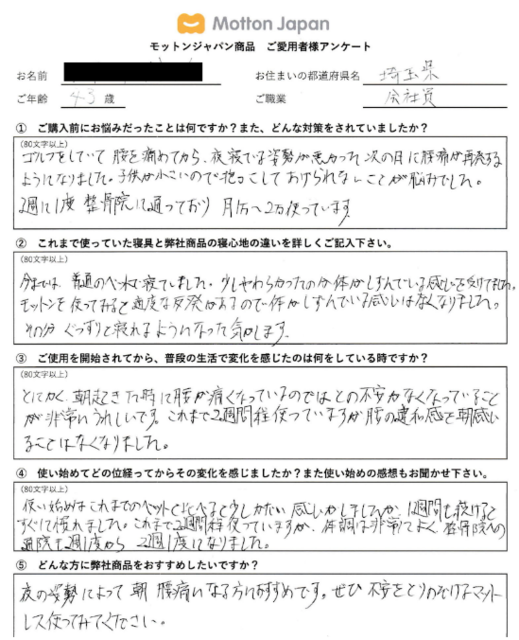 Motton Japan
モットンジャパン商品　ご愛用者様アンケート
お名前
お住まいの都道府県名　埼玉県
ご年齢　43 歳
ご職業　会社員
① ご購入前にお悩みだったことは何ですか？また、どんな対策をされていましたか？
(80文字以上)
ゴルフをしていて 腰を痛めてから、夜寝ている姿勢が悪かった次の日に腰痛が再発する
ようになりました。子供が小さいので抱っこしてあげられないことが悩みでした。
週に1度 整骨院に通っており 月1万〜2万使っています
② これまで使っていた寝具と弊社商品の寝心地の違いを詳しくご記入下さい。
(80文字以上)
今までは 普通のベットで寝ていました。少しやわらかったのか体がしずんでいる感じを受けてました。
モットンを使ってみると適度な反発があるので体がしずんでいる感じはなくなりました。
その分 ぐっすりと寝れるようになった気がします。
③ ご使用を開始されてから、普段の生活で変化を感じたのは何をしている時ですか？
(80文字以上)
とにかく、朝起きた時に腰が痛くなっているのではとの不安がなくなっていること
が非常にうれしいです。これまで2週間程使っていますが腰の違和感を朝感じ
ることはなくなりました。
④ 使い始めてどの位経ってからその変化を感じましたか？また使い始めの感想もお聞かせ下さい。
(80文字以上)
使い始めはこれまでのベットとくらべると少しかたい 感じがしましたが、1週間も続けると
すぐに慣れました。これまで2週間程使っていますが、体調は非常によく 整骨院への
通院も週1度から 2週1度になりました。
⑤ どんな方に弊社商品をおすすめしたいですか？
夜の姿勢によって 朝 腰痛になる方におすすめです。ぜひ 不安をとりのぞけるマット
レス使ってみてください。